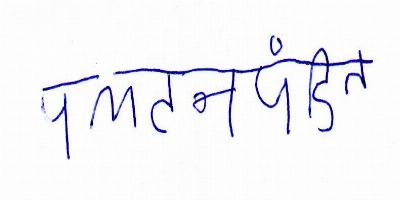 पमतन पंडित